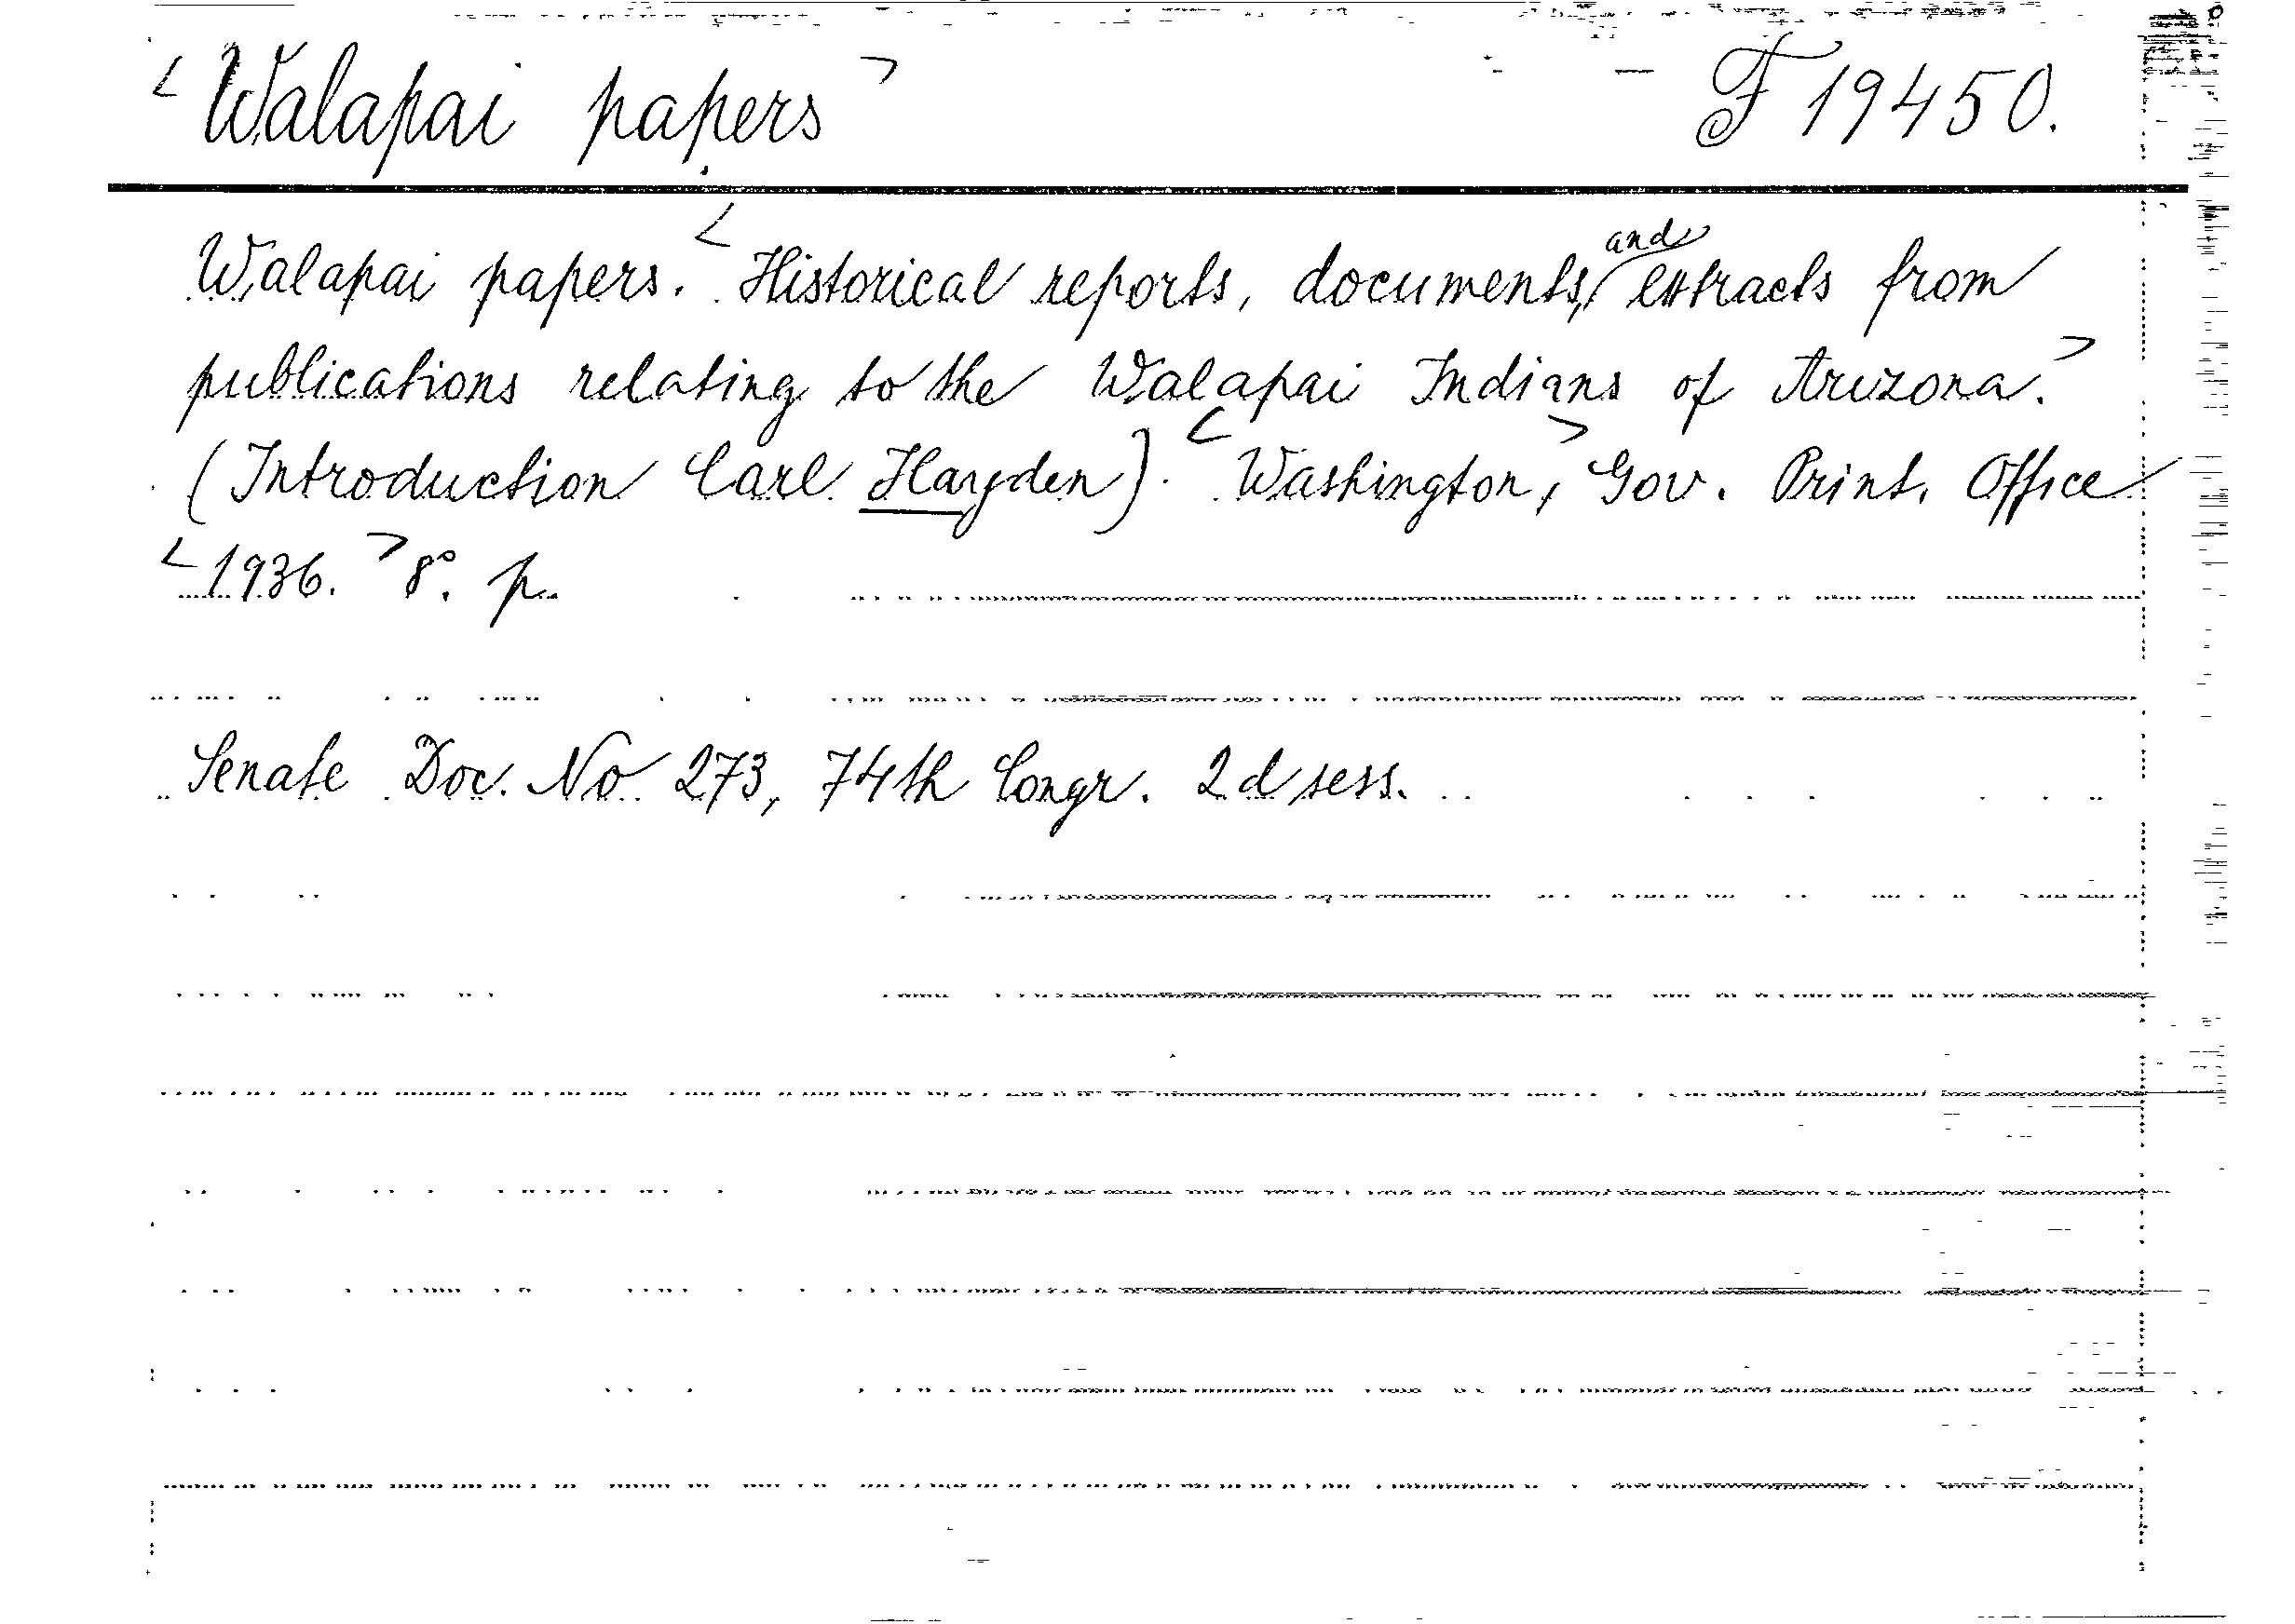 <Walapai papers> F 19450.
Walapai papers. <Historical reports, documents, and extracts from
publications relating to the Walapai Indians of Arizona.>
(Introduction Carl Hayden). <Washington,> Gov. Print. Office
<1936.> 8°. p.
Senate Doc. No 273, 74th Congr. 2d sess.